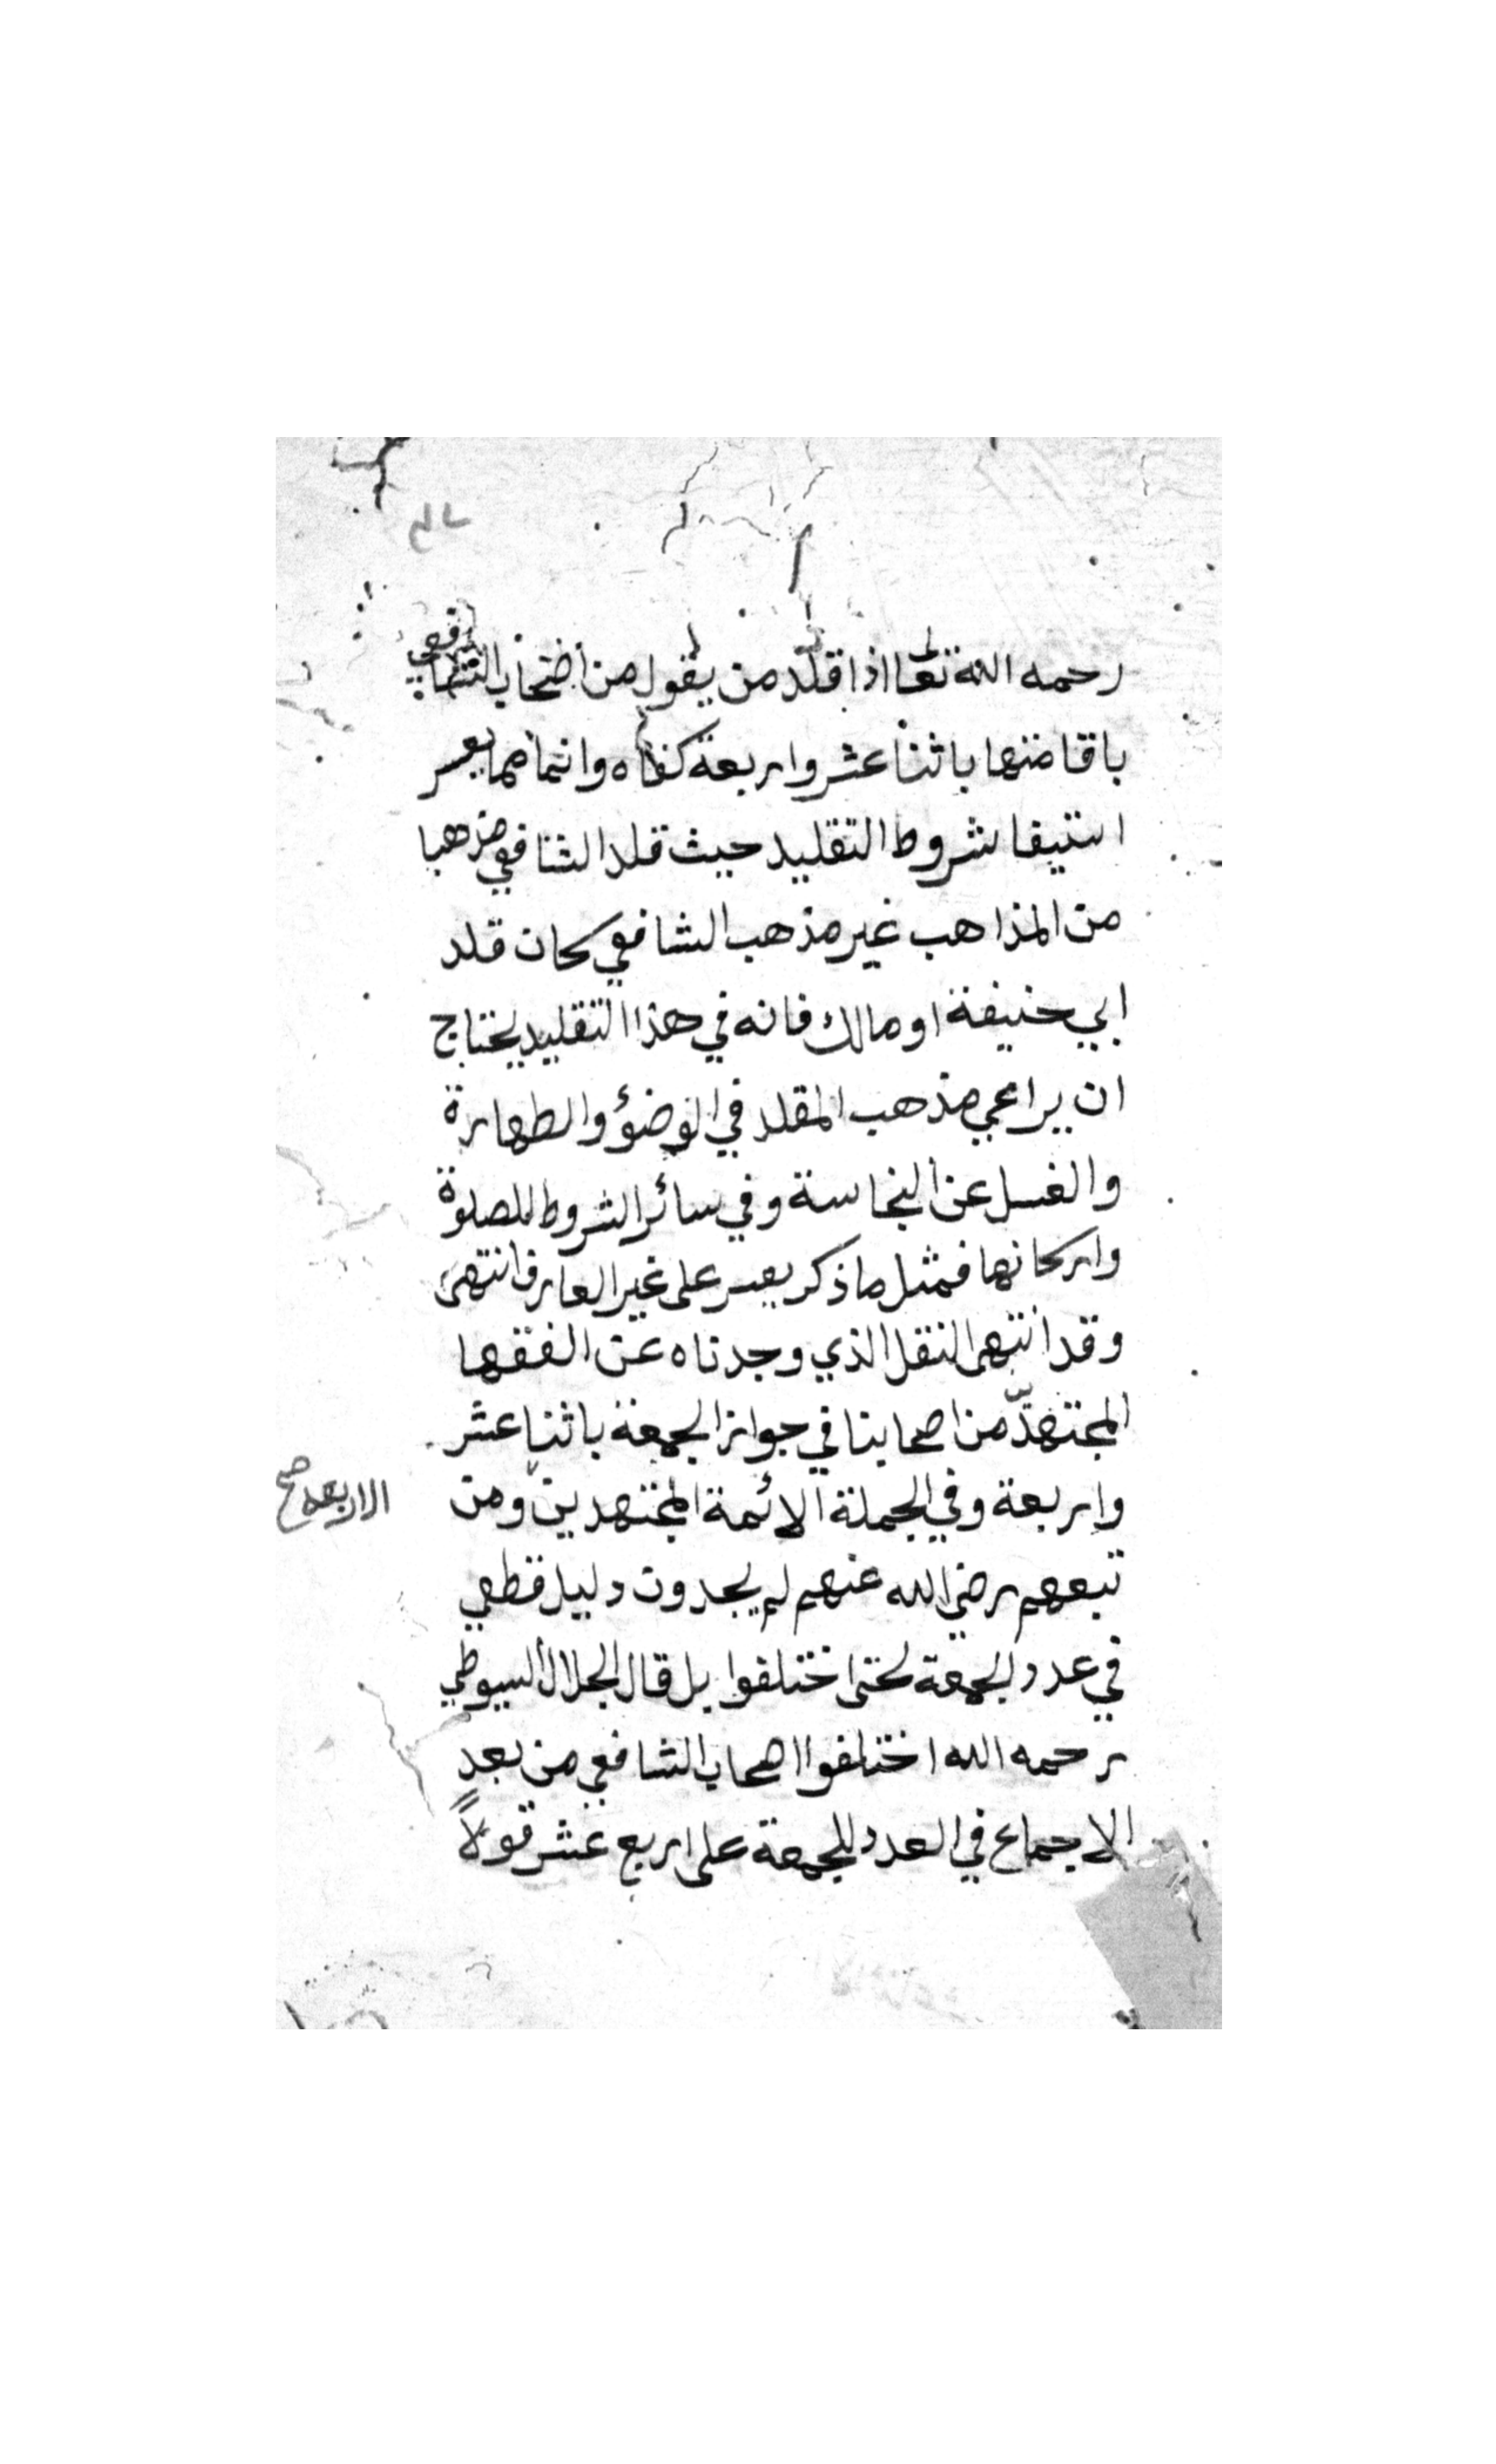 رحمه الله تعالى اذا قلّد من يقول من اصحاب الشافعي
باقامتها باثنا عشر واربعة كفاه وانما هما يعسر
استيفا شروط التقليد حيث قلد الشافعي مذهبا
من المذاهب غير مذهب الشافعي كان قلد
ابي حنيفة او مالك فانه في هذا التقليد يحتاج
ان يراعي مذهب المقلد في الوضؤ والطهارة
والغسل عن النجاسة وفي سائر الشروط للصلوة
واركانها فمثل ما ذكر يعسر على غير العارف انتهى
وقد انتهى النقل الذي وجدناه عن الفقها
المجتهدّ من اصحابنا في جواز الجمعة باثنا عشر
واربعة وفي الجملة الائمة المجتهدين ومن
الاربعة صح
تبعهم رضي الله عنهم لم يجدون دليل قطعي
في عدد الجمعة حتى اختلفوا بل قال الجلال السيوطي
رحمه الله اختلفوا اصحاب الشافعي من بعد
الاجماع في العدد للجمعة على اربع عشر قولاً